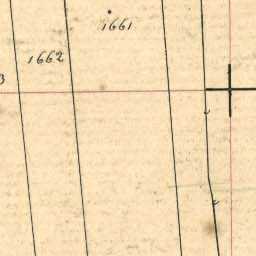 1661
1662
3